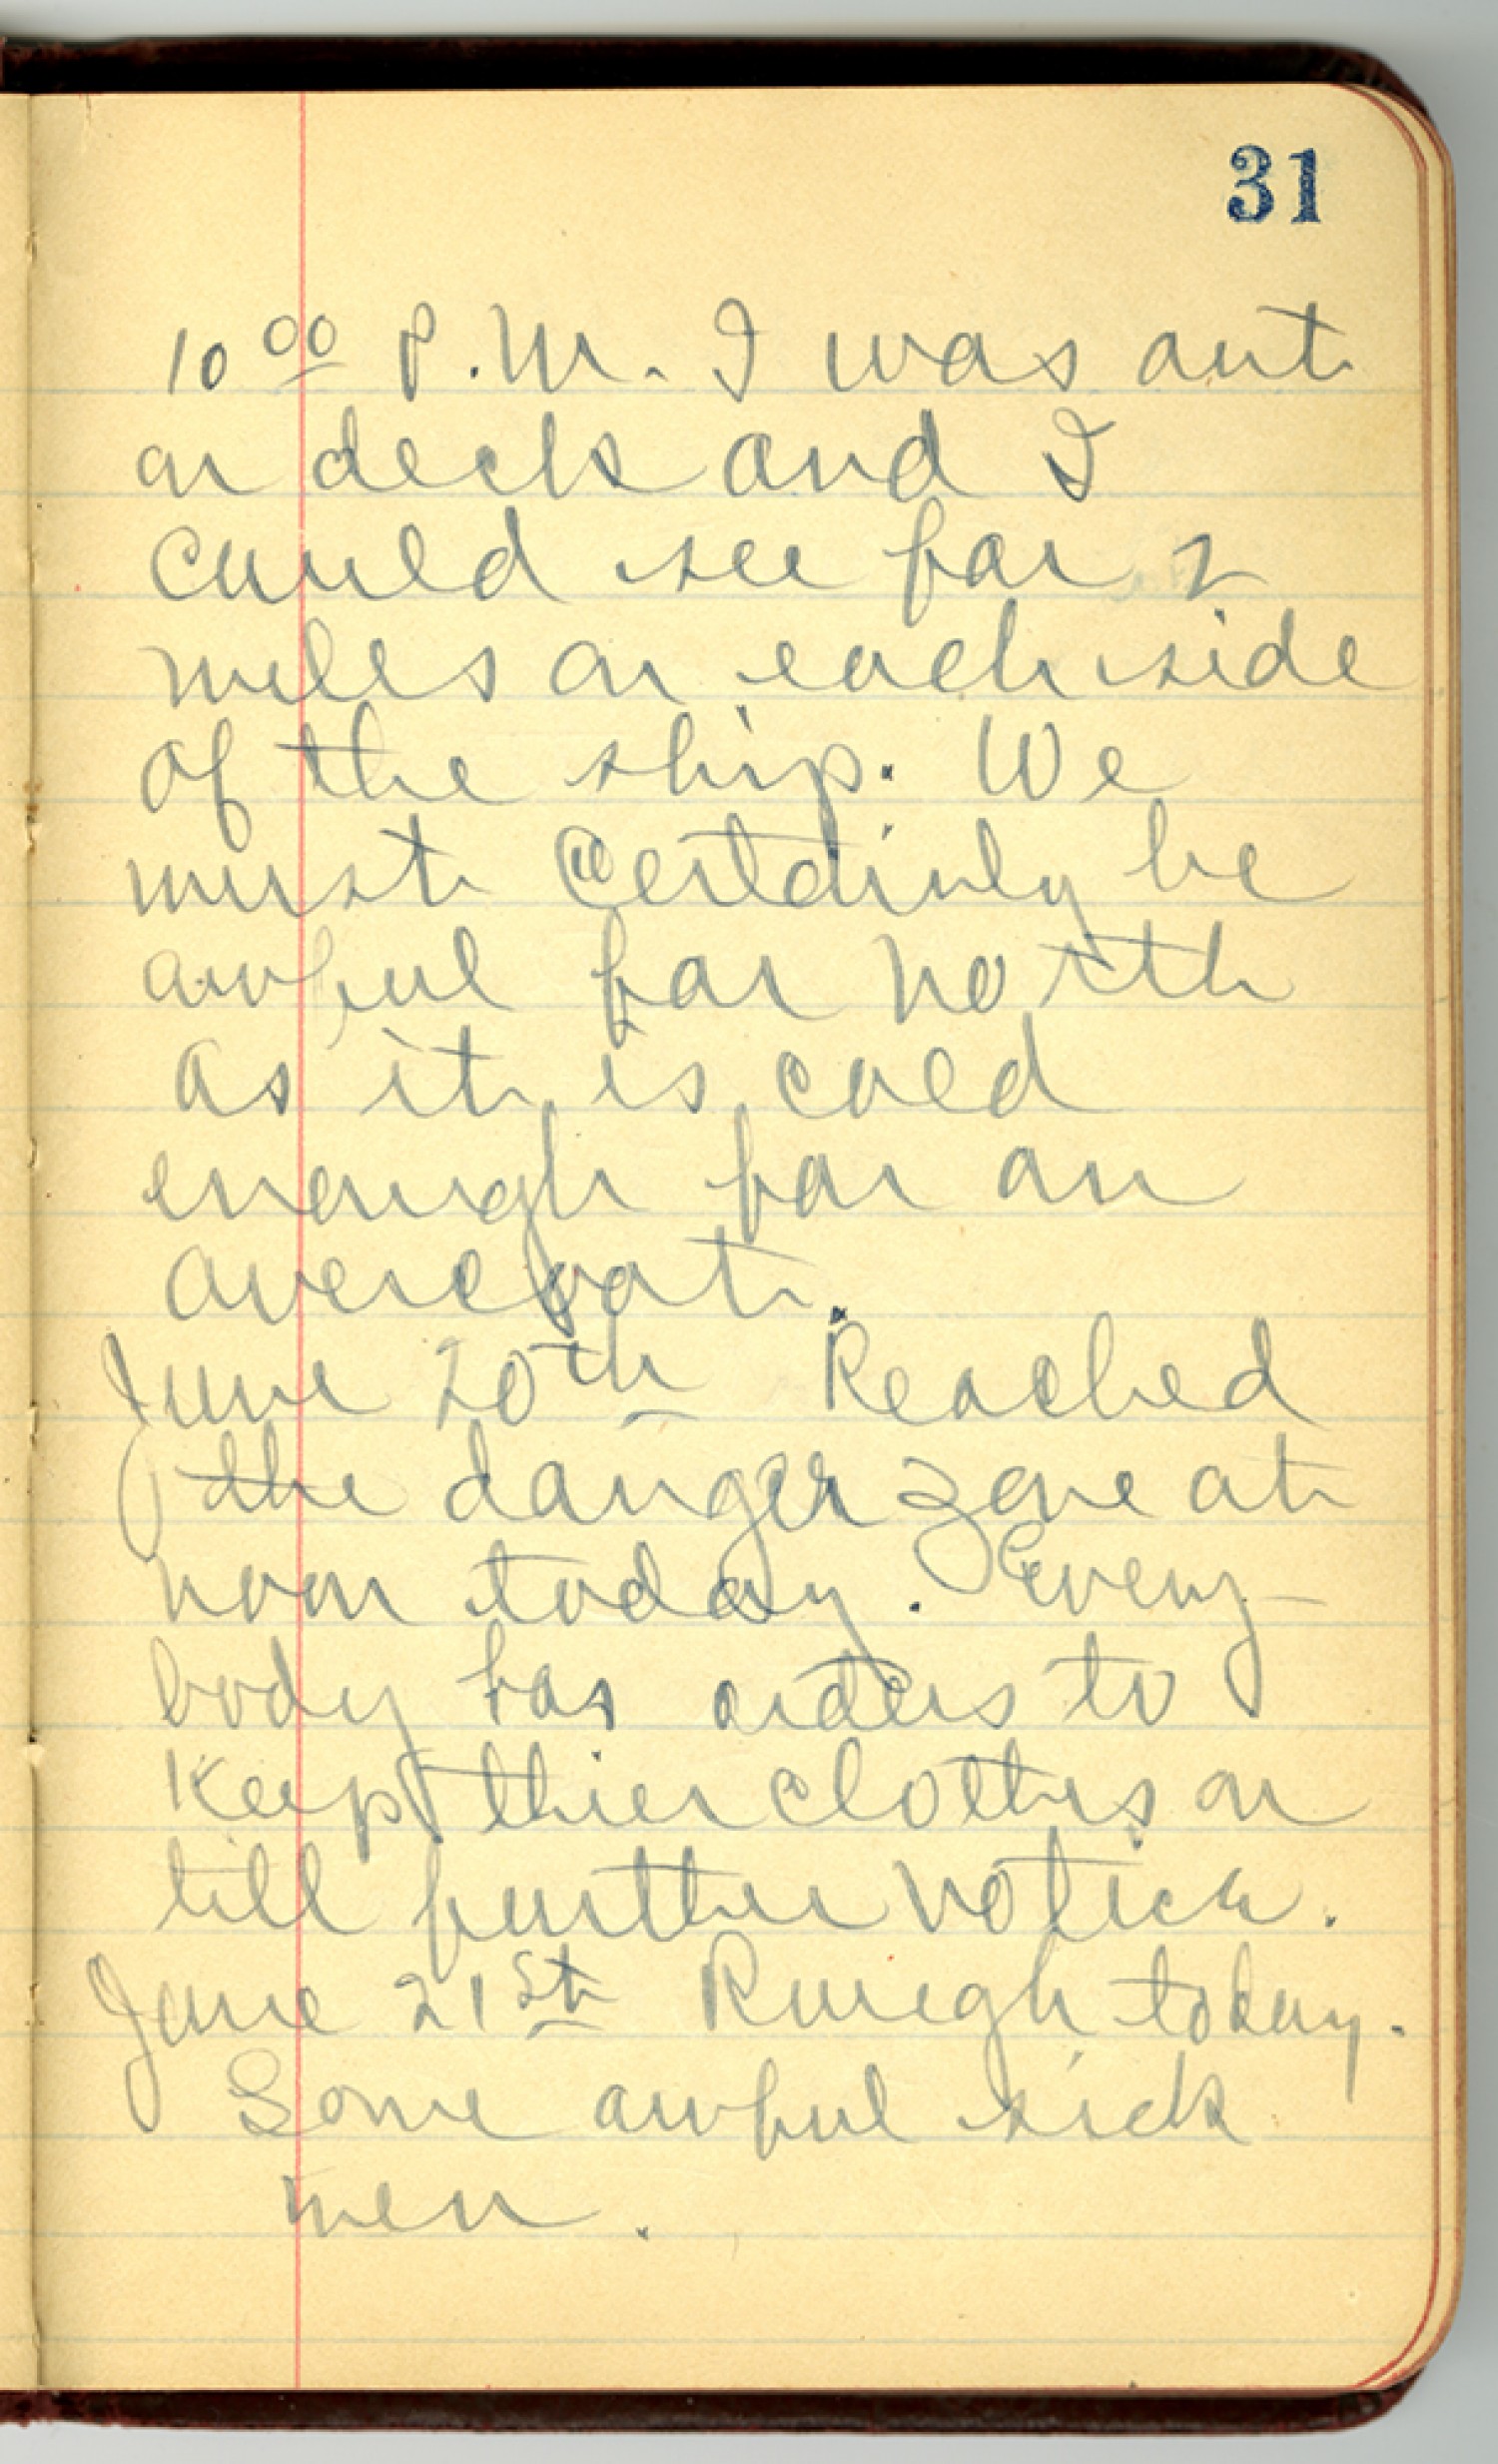 31
10 00 P.M. I was out
on deck and I
could see for 2
miles on each side
of the ship. We
must certainly be
awful far north
as it is cold
enough for an
overcoat.
June 20th Reached
the danger zone at
noon today. Every-
body has orders to
keep thier clothes on
till further notice.
June 21st Rough today.
Some awful sick
men.